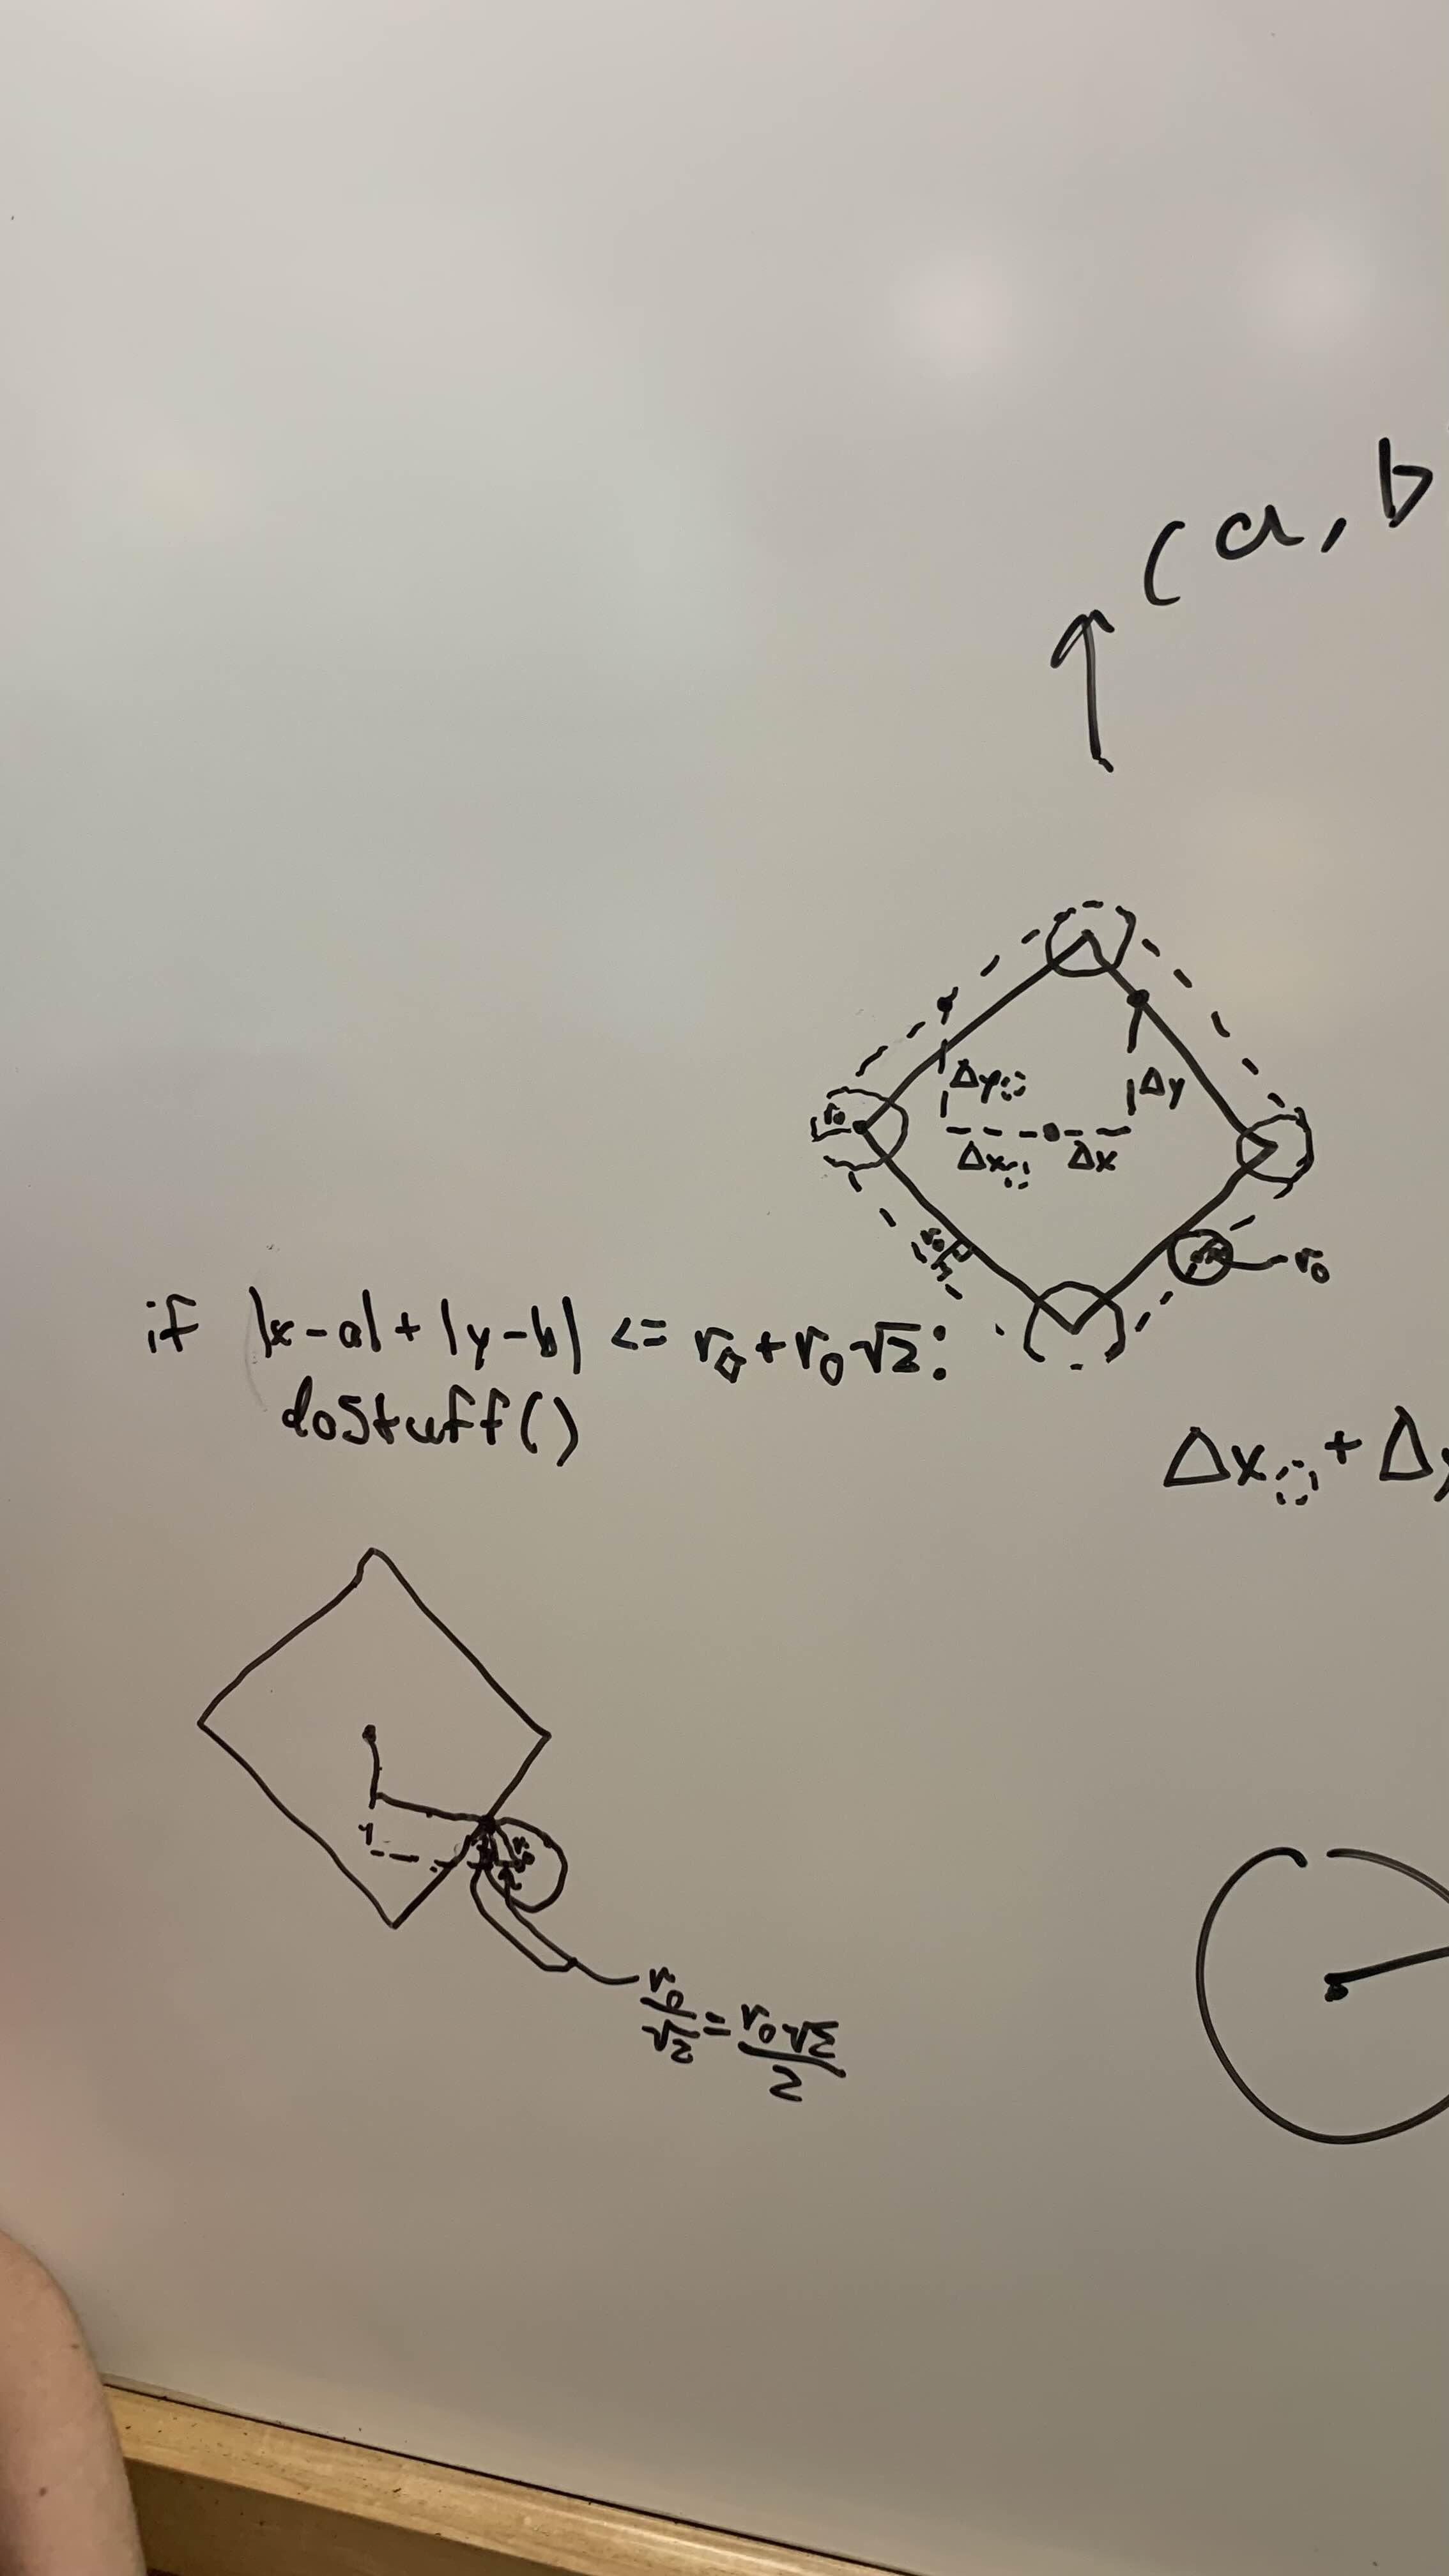 (a, b
Δy◌ Δy
r₀
Δx◌ Δx
r₀
r₀
if |x-a| + |y-b| <= r◇ + r₀√2:
doStuff()
Δx◌ + Δy
r₀
r₀/√2 = r₀√2/2